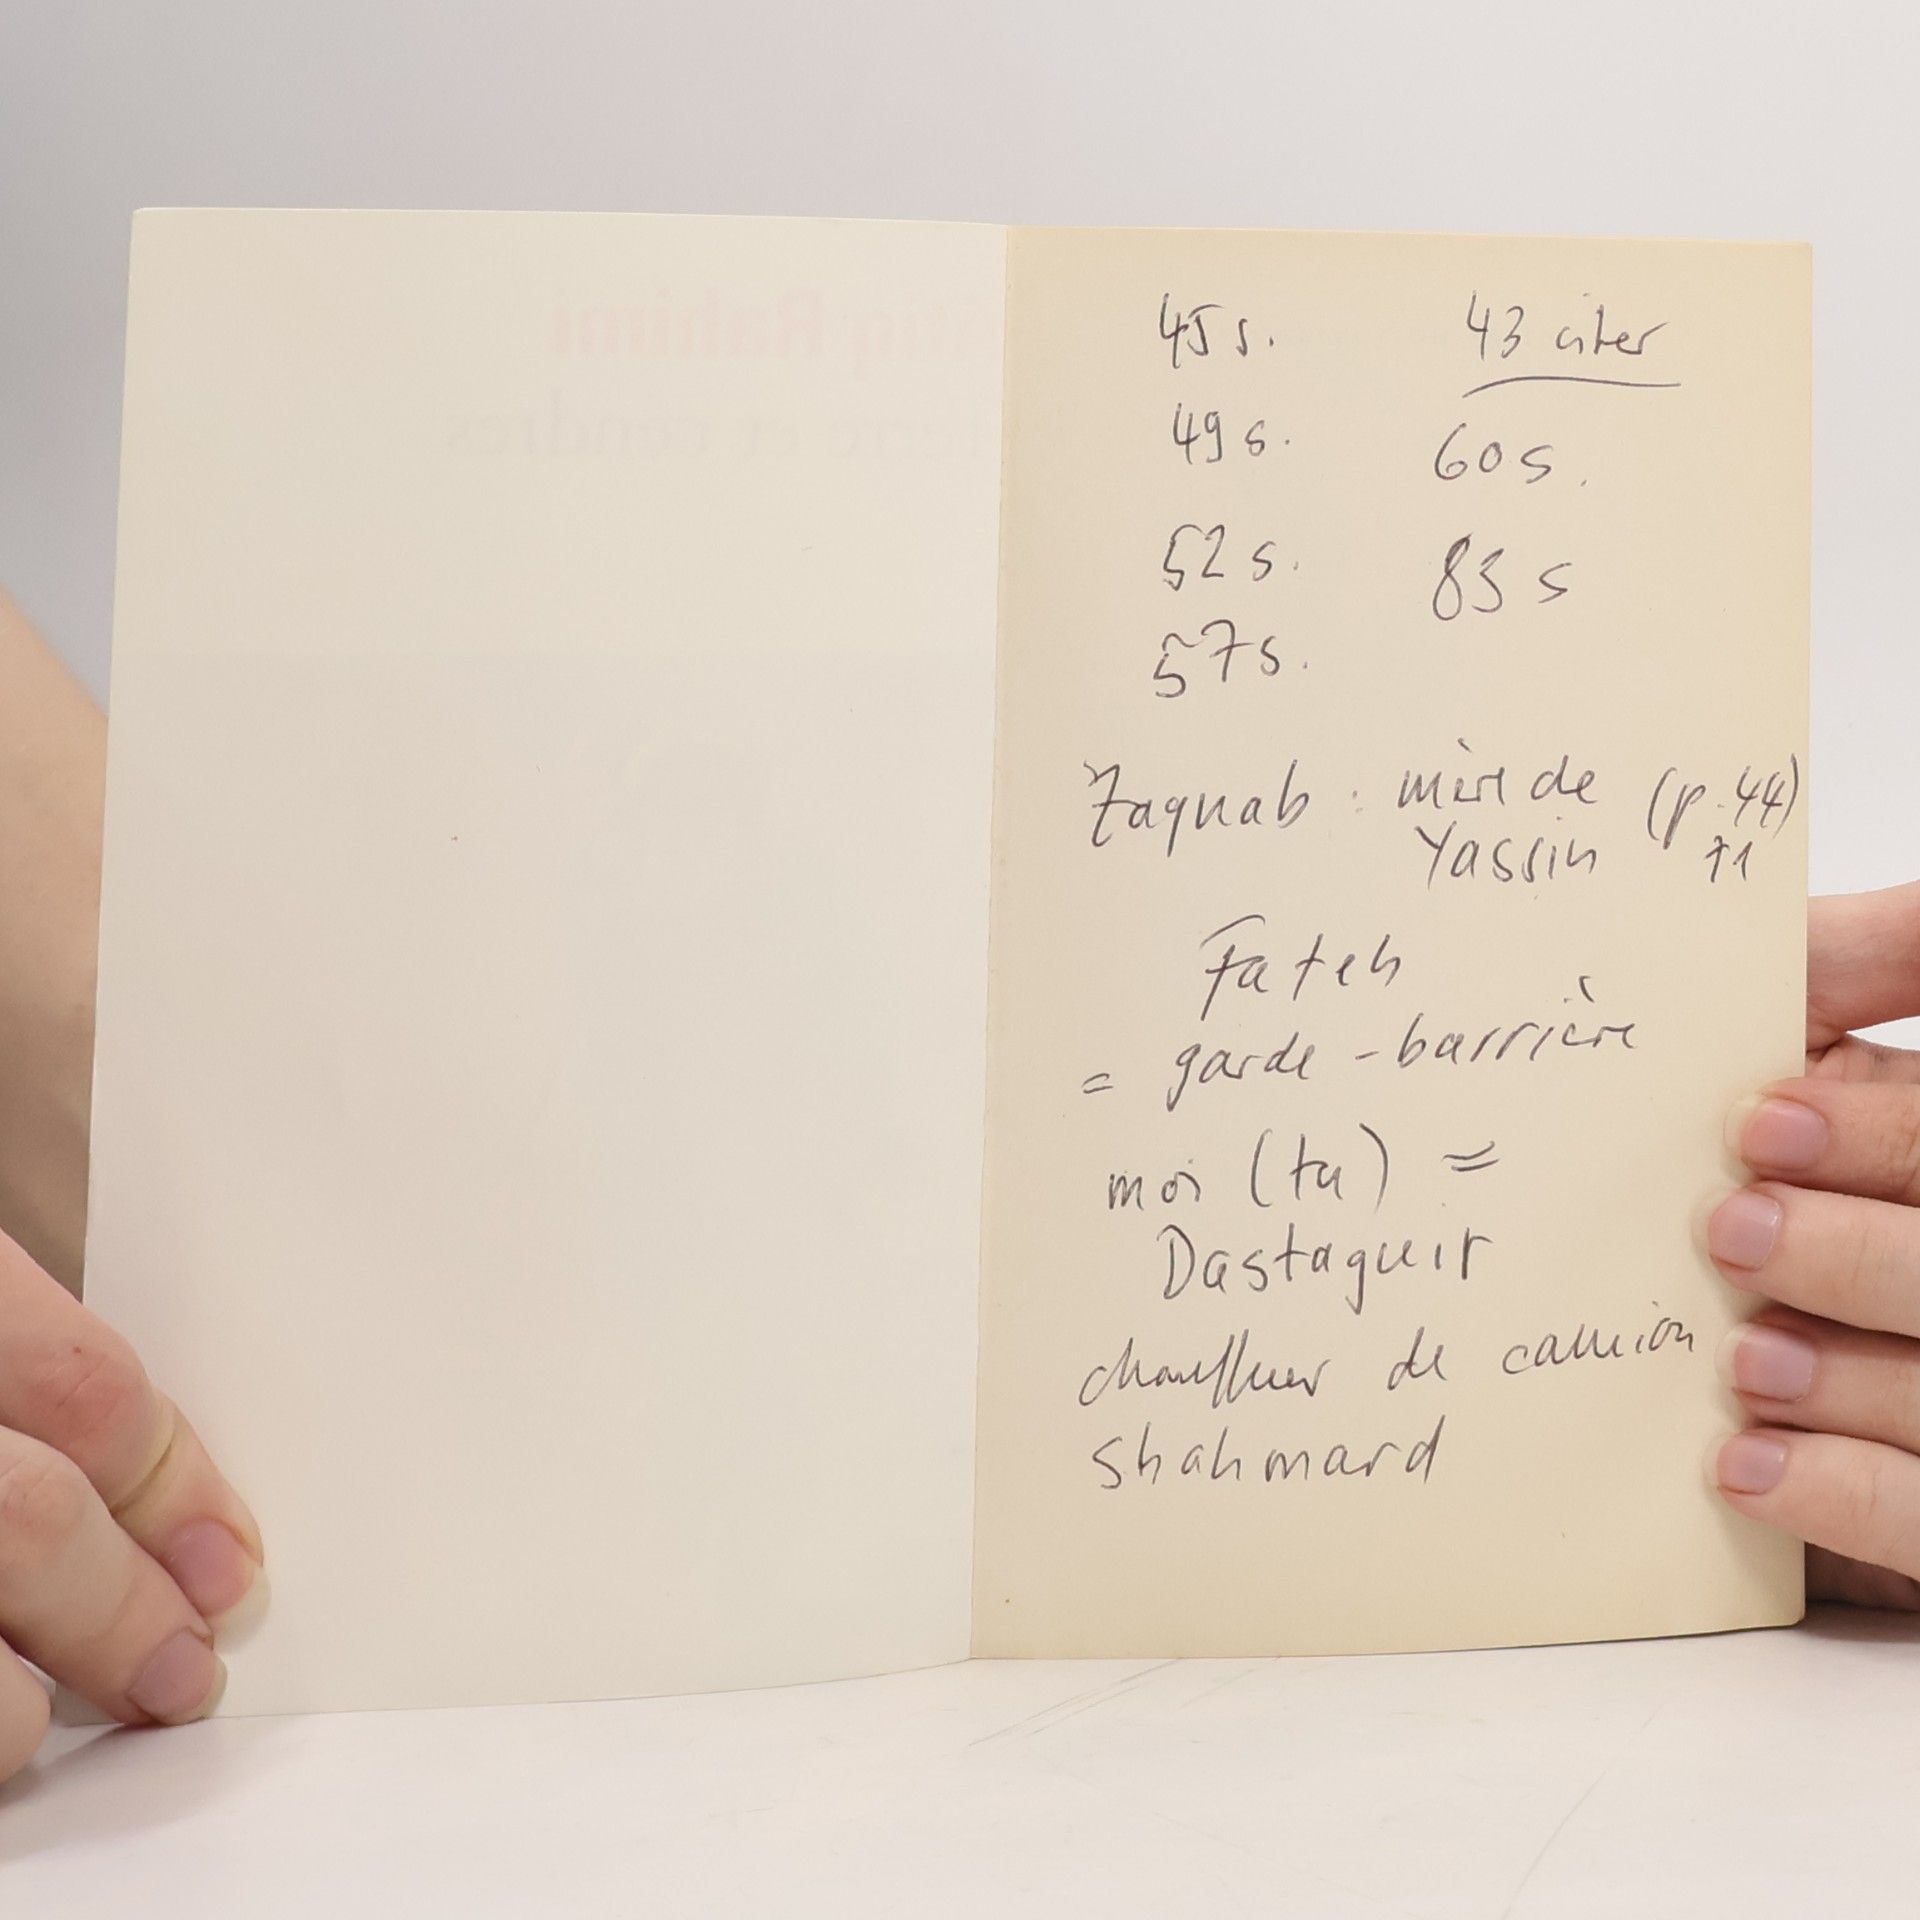 Rahimi
Terre et cendres
45 s.
49 s.
52 s.
57 s.
43 citer
60 s.
83 s
Zaqnab : mère de (p. 44)
Yassin 71
Fateh
= garde-barrière
moi (tu) =
Dastaguir
chauffeur de camion
Shahmard